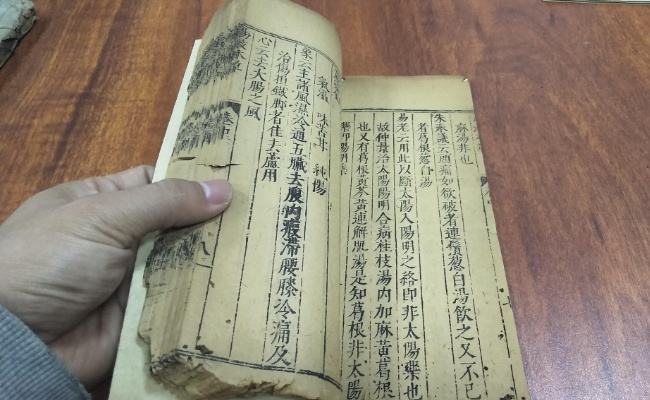 麻湯非也
朱奉議云頭痛如欲破者連鬚葱白湯飲之又不已
者葛根葱白湯
易老云用此以斷太陽入陽明之絡即非太陽藥也
故仲景治太陽陽明合病桂枝湯內加麻黃葛根
也又有葛根黃芩黃連解肌湯是知葛根非太陽
藥即陽明藥
氣溫 味苦甘 純陽
象云主諸風濕冷通五臟去腹內瘕滯腰膝冷痛及
治傷損鐵脚者佳去蘆用
心云去大腸之風